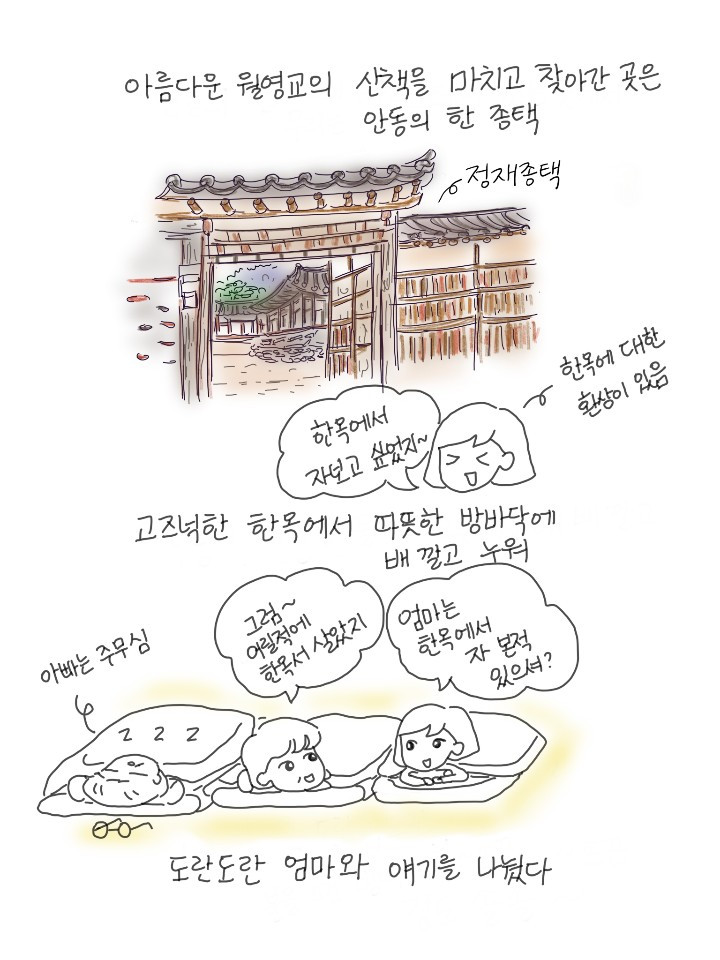 아름다운 월영교의 산책을 마치고 찾아간 곳은
안동의 한 종택
정재종택
한옥에 대한
환상이 있음
한옥에서
자보고 싶었지~
고즈넉한 한옥에서 따뜻한 방바닥에
배 깔고 누워
그럼~
어릴적에
한옥서 살았지
엄마는
한옥에서
자 본적
있으셔?
아빠는 주무심
z z z
도란도란 엄마와 얘기를 나눴다